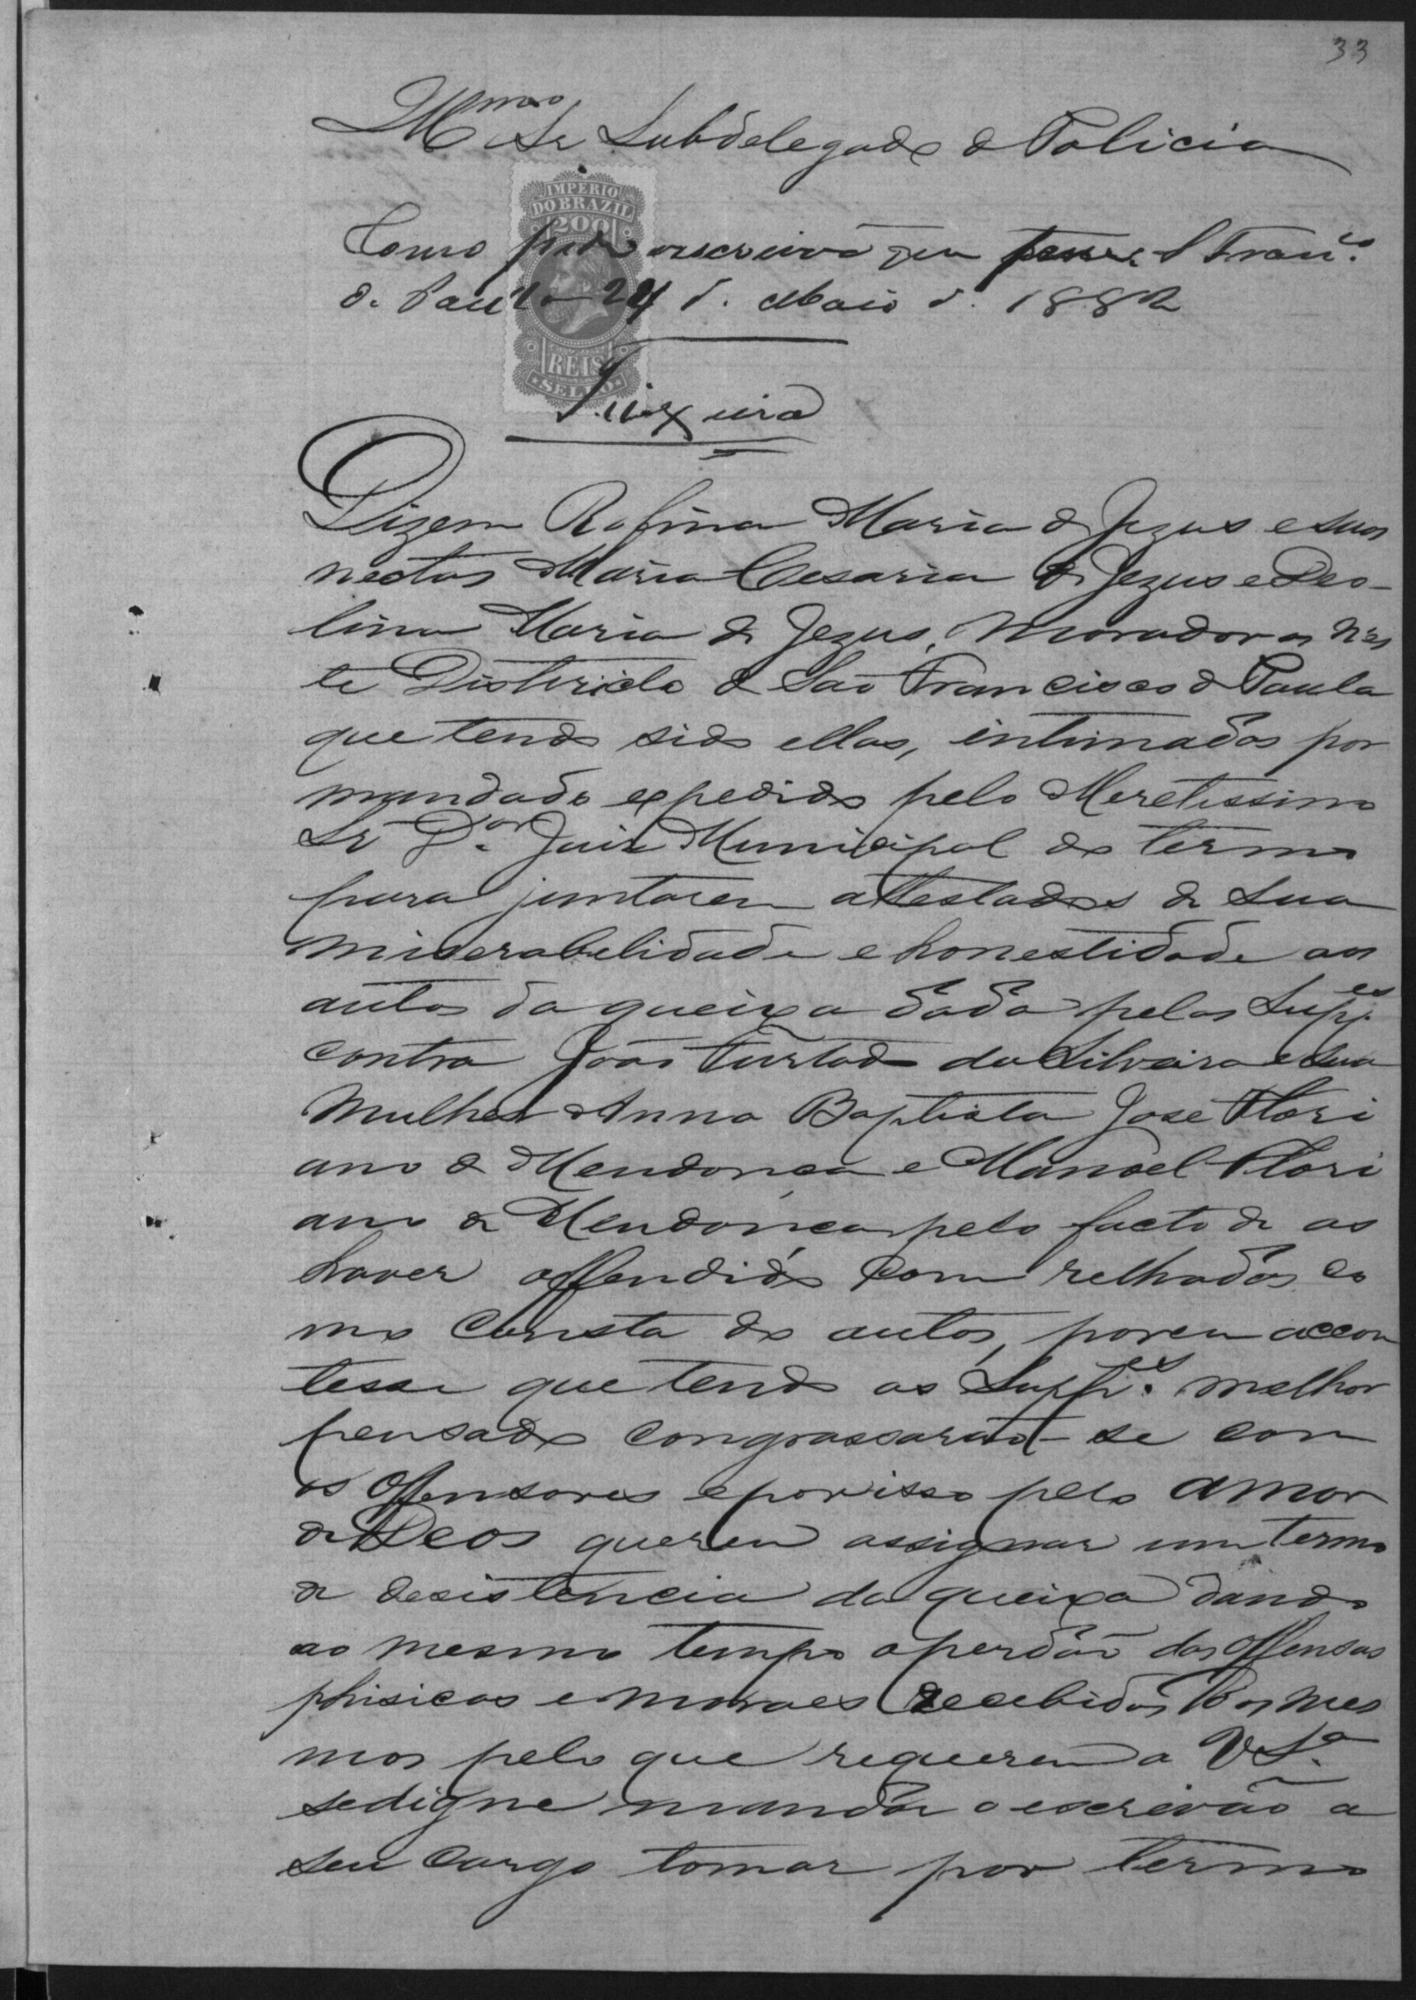 33
Illmo Sr Subdelegado de Policia
IMPERIO
DO BRAZIL
200
REIS
SELLO
Como pede o escrivão que S Franco
de Paula 24 de Maio de 1882
Teixeira
Dizem Rofina Maria de Jezus e suas
nectas Maria Cesaria de Jezus e Deo-
lina Maria de Jezus, moradoras nes
te Districto de São Francisco de Paula
que tendo sido ellas, intimadas por
mandado expedido pelo Meretissimo
Sr Dor Juiz Municipal do termo
para juntarem attestados de sua
miserabelidade e honestidade aos
autos da queixa dada pelas Suppes
contra João Furtado da Silveira e sua
Mulher Anna Baptista José Flori
ano de Mendonça e Manoel Flori
ano de Mendonça, pelo facto de as
haver offendido com relhadas co
mo consta dos autos, porem accon
tesse que tendo as Suppes melhor
pensado congrassarão-se com
os offensores e por isso pelo amor
de Deos querem assignar um termo
de desistencia da queixa dando
ao mesmo tempo o perdão das offensas
phisicas e moraes recebidas dos mes
mos pelo que requerem a V Sa
se digne mandar o escrivão a
seu cargo tomar por termo